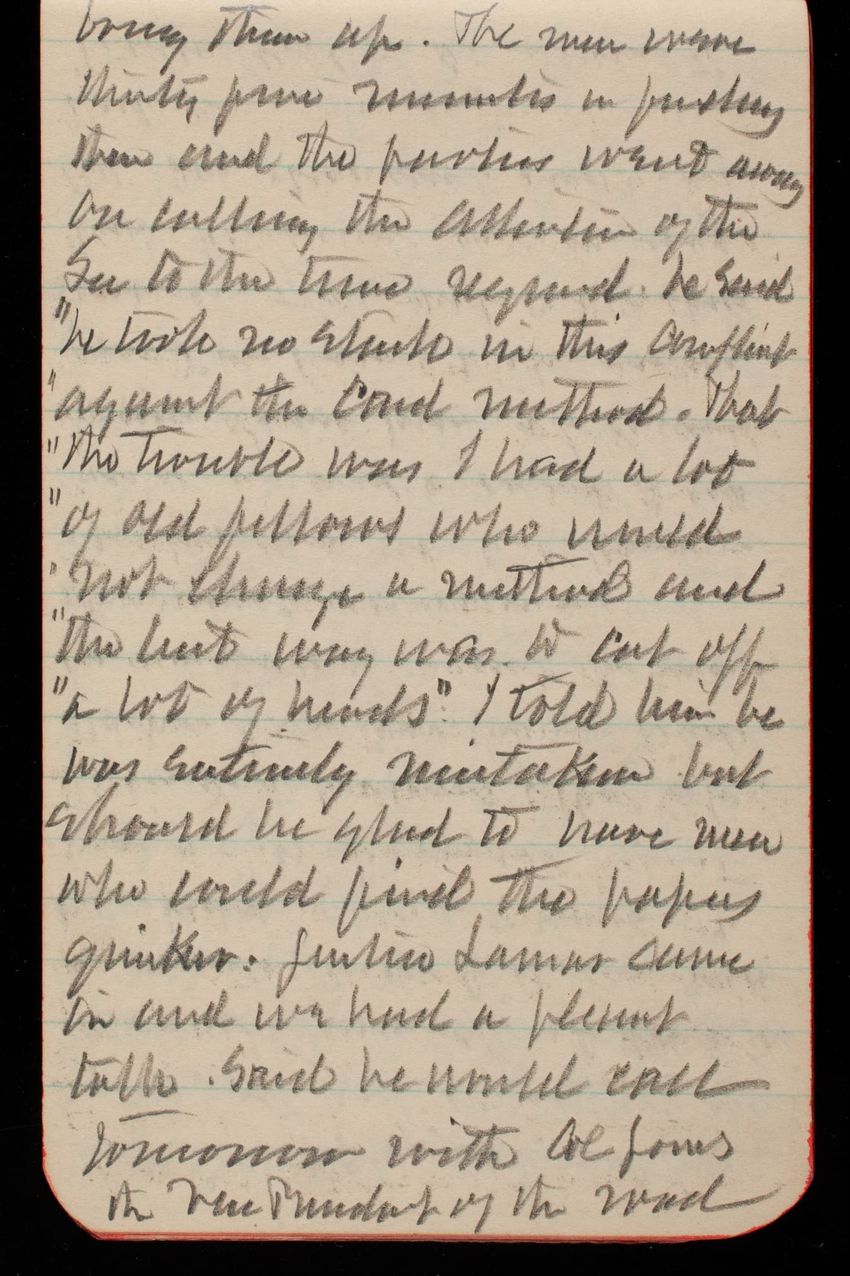 bring them up. The men were
thirty five minutes in finding
them and the parties went away
On calling the attention of the
Sec to the time required. he Said
"he took no stock in this Conflict
"against the Card method. That
"the trouble was I had a lot
"of old fellows who would
"not change a method and
"the best way was to cut off
"a lot of heads". I told him he
was entirely mistaken but
should be glad to have men
who could find the papers
quicker. Justice Lamar came
in and we had a pleasant
talk. Said he would call
tomorrow with Col Jones
the Vice President of the road